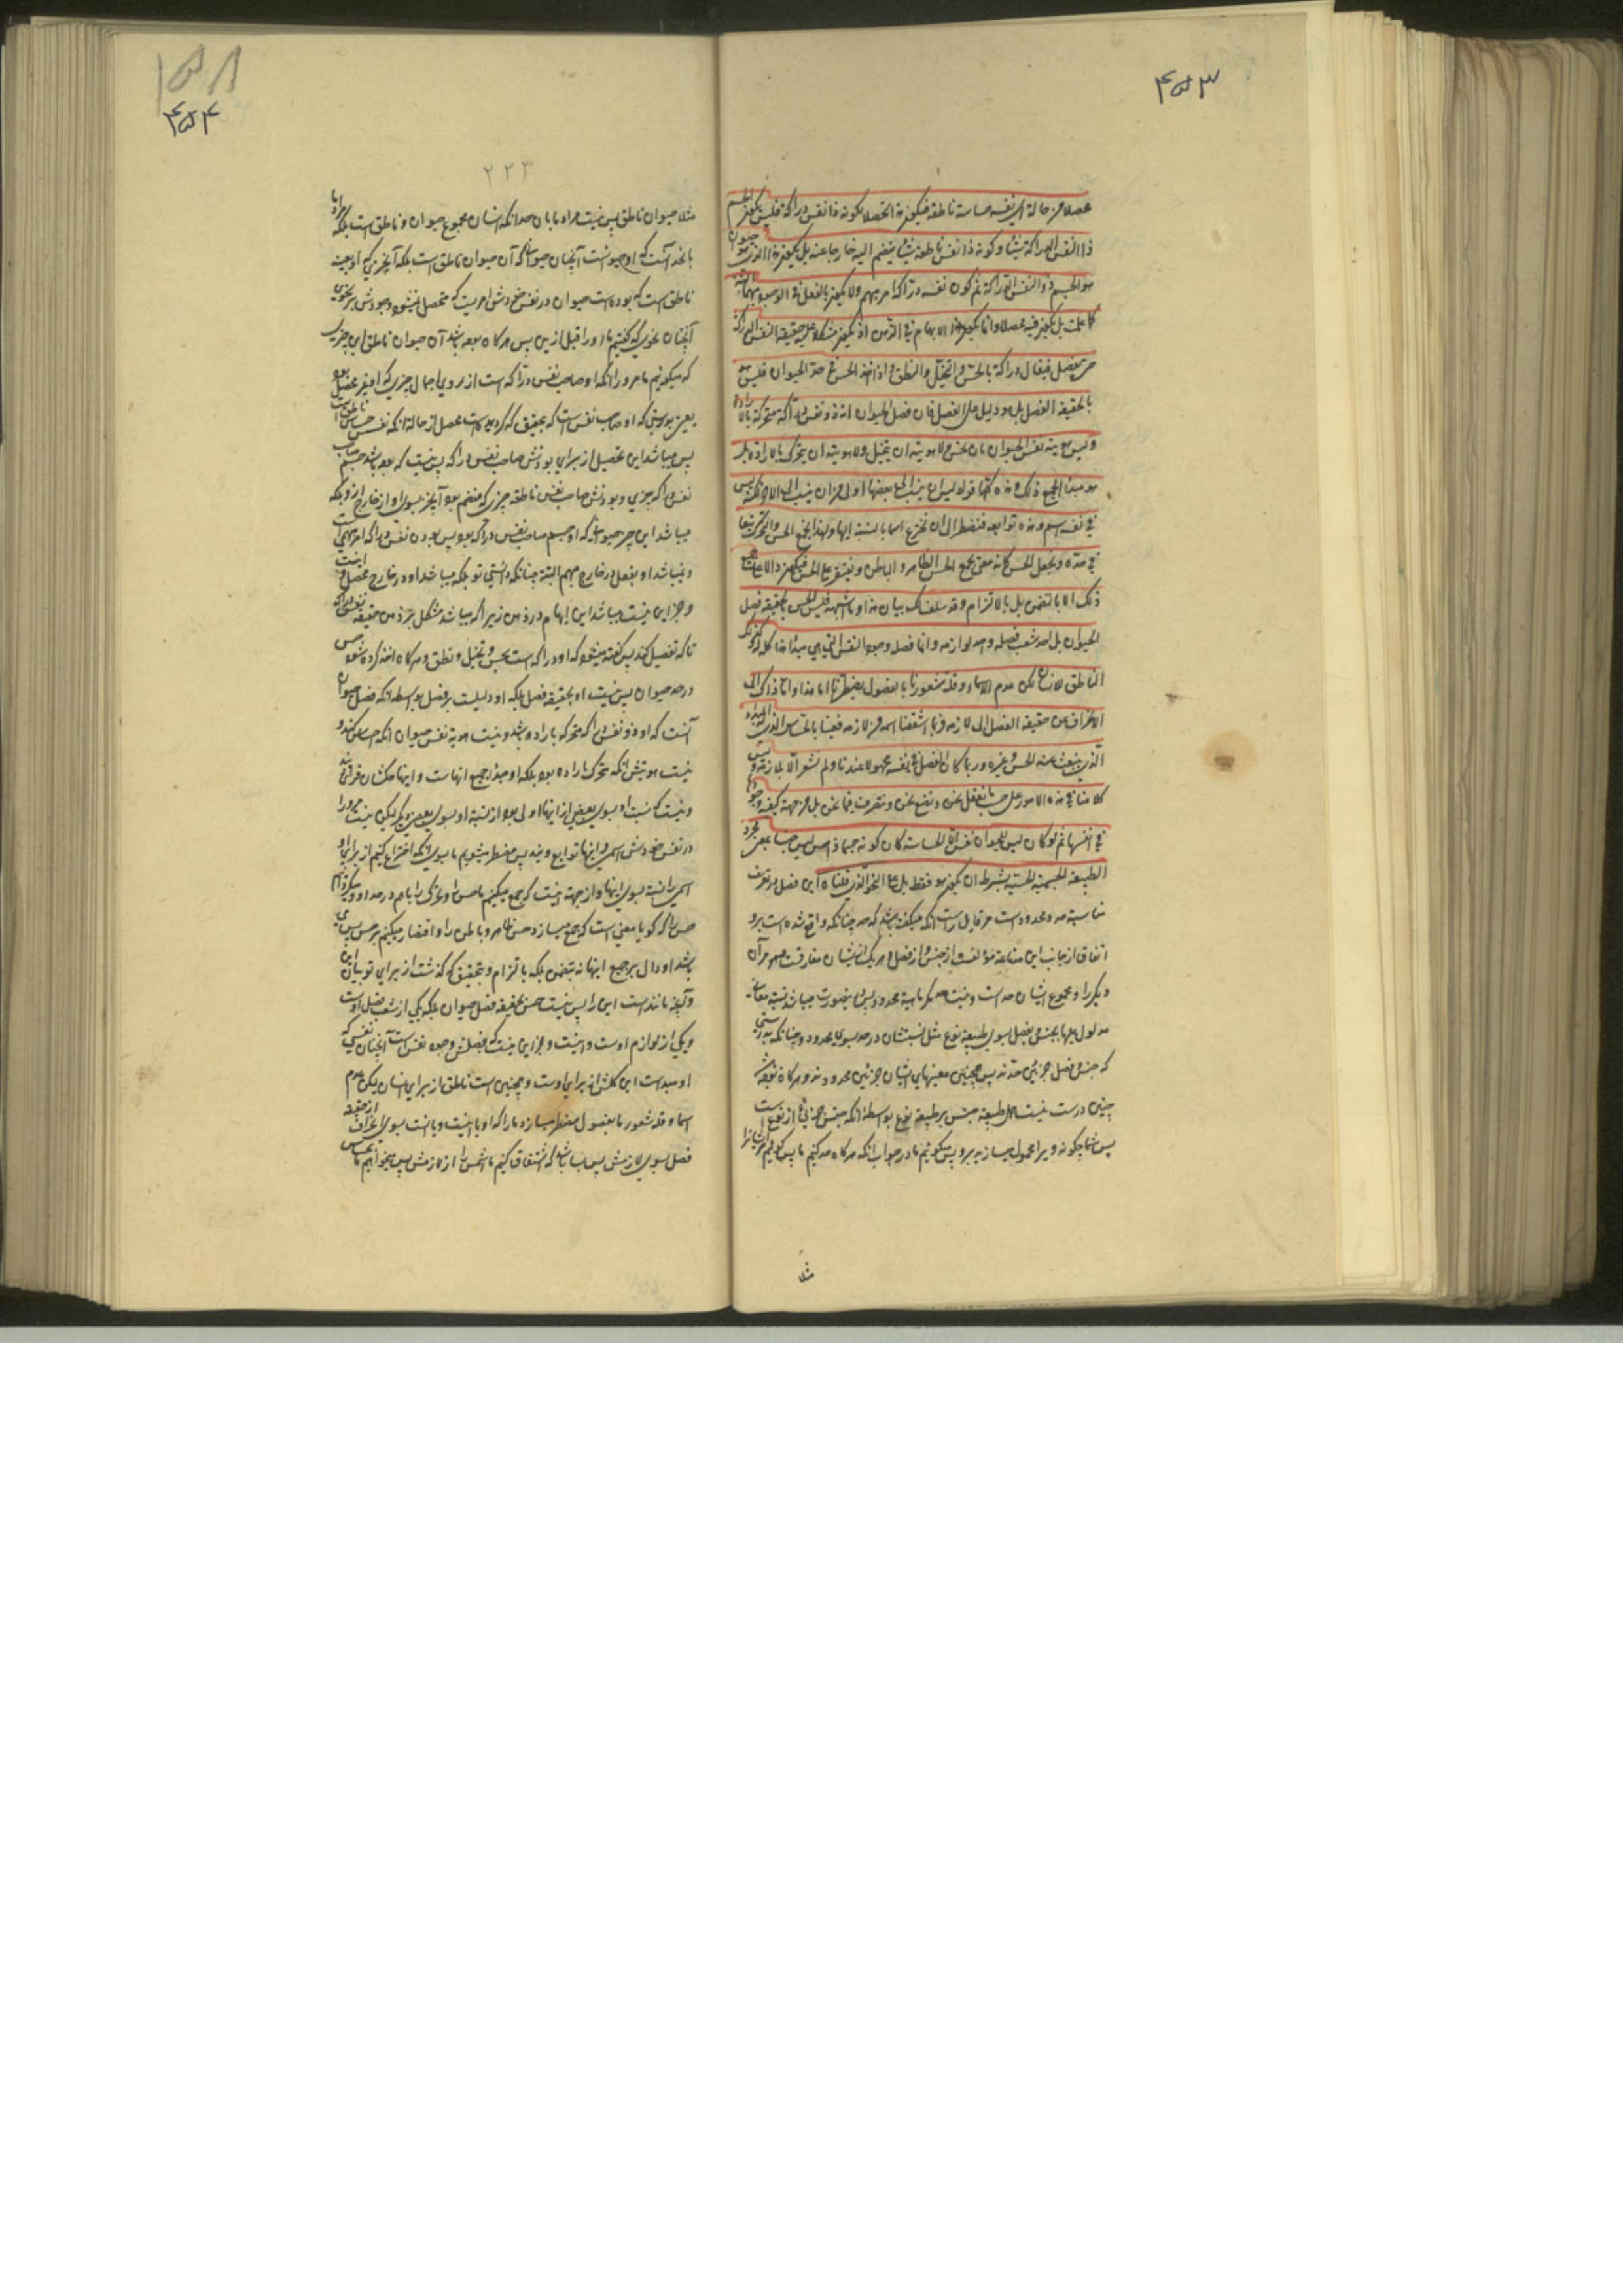 ۴۵۳
محصلا من حالة ان نفسه حساسة ناطقة فيكون هذا التحصل لكونه ذا نفس دراكة فليس يكون الجسم
ذا النفس الدراكة شيئا وكونه ذا نفس ناطقة شيئا ينضم اليه خارجا عنه بل يكون هذا الذى هو حيوان
هو الجسم ذو النفس الدراكة ثم كون نفسه دراكة امر مبهم ولا يكون بالفعل فى الوجود مبهما البتة
كما علمت بل يكون فيه محصلا وانما يكون هذا الابهام فى الذهن اذ يكون مشكلا عليه حقيقة النفس الدراكة
حتى يفصل فيقال دراكة بالحس والتخيل والنطق واذا اخذ الحس فى حد الحيوان فليس هو
بالحقيقة الفصل بل هو دليل على الفصل فان فصل الحيوان انه ذو نفس دراكة متحركة بالارادة
وليس هوية نفس الحيوان ان يحس ولا هويته ان يتخيل ولا هويته ان يتحرك بالارادة بل
هو مبدأ لجميع ذلك وهذه كلها قواه ليس ان ينسب الى بعضها اولى من ان ينسب الى الاخر لكنه ليس
له فى نفسه اسم وهذه توابعه فنضطر الى ان نخترع اسما بالنسبة اليها ولهذا نجمع الحس والتحرك معا
فى حده ونجعل الحس كانه معنى يجمع الحس الظاهر والباطن ونقتصر على الحس فيكون دالا على جميع
ذلك لا بالتضمن بل بالالتزام وقد سلف لك بيان هذا وما اشبهه فليس الحس بالحقيقة فصل
الحيوان بل احد شعب فصله واحد لوازمه وانما فصله وجود النفس التى هى مبدأ هذا كله له وكذلك
الناطق للانسان لكن عدم الاسماء وقلة شعورنا بالفصول يضطرنا اما هذا واما ذاك الى
الانحراف عن حقيقة الفصل الى لازمه فربما اشتققنا اسمه من لازمه فعنينا بالحساس الذى له المبدء
الذى ينبعث عنه الحس وغيره وربما كان الفصل فى نفسه مجهولا عندنا ولم نشعر الا بلازمه وليس
كلامنا فى هذه الامور على حسب ما نعقل نحن ونضع نحن ونتصرف فيها نحن بل من جهة كيفية وجودها
فى انفسها ثم لو كان ليس للحيوان نفس الا الحساسة كان كونه جسما ذا حس ليس جنسا بمعنى مجرد
الطبيعة الجسمية الحسية بشرط ان يكون هو فقط بل على النحو الذى قلناه اين فصل در تعريف
مناسبة حد ومحدود است مر قايل راست انكه ميگفته باشد كه حد چنانكه واقع شده است برو
اتفاق از جانب اين صناعة مؤلفست از جنس و از فصل و هر يك از ايشان مفارقست مر آن
ديگر را و مجموع ايشان حد است و نيست حد مگر ماهية محدود پس در اين صورت ميباشد نسبة معانى
مدلول عليها بجنس و فصل بسوى طبيعة نوع مثل نسبتشان در حد بسوى محدود و چنانكه بدرستى
كه جنس و فصل جزئين حدند پس همچنين معنيهاى ايشان جزئين محدودند و هرگاه بوده باشد
چنين درست نيست حمل طبيعة جنس بر طبيعة نوع بواسطه انكه جنس جزئى از نوع است
پس شما چگونه ويرا محمول ميسازيد برو پس ميگوئيم ما در جواب انكه هرگاه حد كنيم ما پس گوئيم انسانرا
مثلا
۱۵۸
۴۵۴
۲۲۳
مثلا حيوان ناطق پس نيست مراد ما بان حد انكه انسان مجموع حيوان و ناطق است بلكه مراد ما
بانحد آنست كه او حيوانست آنچنان حيوانى كه آن حيوان ناطق است بلكه آنچيزى كه او بعينه
ناطق است كه بوده است حيوان در نفس خودش امريست كه متحصل نميشود وجودش بر نحوى
آنچنان نحوى كه گفتيم ما او را قبل ازين پس هرگاه بوده باشد آن حيوان ناطق اى چيزى
كه ميگوئيم ما مر او را انكه او صاحب نفس دراكه است از روى اجمال چيزى كه او غير محصل بود
يعنى بودنى كه او صاحب نفس است كه بتحقيق كه گرديده است محصل از حالة انكه نفسش حساس ناطق است
پس ميباشد اين تحصيل از براى بودنش صاحب نفس دراكه پس نيست كه بوده باشد جسم صاحب
نفس دراكه چيزى و بودنش صاحب نفس ناطقه چيزى كه منضم بود آنچيز بسوى او از خارج از او بلكه
ميباشد اين چيز حيوانى كه او جسم صاحب نفس دراكه بود پس بودن نفس دراكه امر مبهمى است
و نميباشد او بفعل در خارج مبهم البته چنانكه دانستى تو بلكه ميباشد او در خارج محصل و اينست
و جز اين نيست ميباشد اين ابهام در ذهن زيراكه ميباشد مشكل بر ذهن حقيقة نفس دراكه
تا كه تفصيل كند پس گفته ميشود كه او دراكه است بحس و تخيل و نطق و هرگاه اخذ كرده شود حس
در حد حيوان پس نيست او بحقيقة فصل بلكه او دليلست بر فصل بواسطه انكه فصل حيوان
آنست كه او ذو نفس دراكه متحركه باراده باشد و نيست هوية نفس حيوان انكه احساس كند و
نيست هويتش انكه متحرك باراده بود بلكه او مبدأ جميع انهاست و اينها همگشان قواى اويند
و نيست كه نسبت او بسوى بعضى از اينها اولى بود از نسبة او بسوى بعض ديگر ليكن نيست مر او را
در نفس خودش اسمى و اينها توابع ويند پس مضطر ميشويم ما بسوى انكه اختراع كنيم از براى او
اسمى را نسبة بسوى اينها و از جهة اينست كه جمع ميكنيم ما حس را و تحرك را با هم در حد او و ميگردانيم
حس را كه گويا معنيى است كه جمع ميسازد حس ظاهر و باطن را و اقتصار ميكنيم بر حس پس مى
باشد او دال بر جميع اينها نه بتضمن بلكه بالتزام و بتحقيق كه گذشت از براى تو بيان اين
و آنچه مانند است اين را پس نيست حس بحقيقة فصل حيوان بلكه يكى از شعب فصل اوست
و يكى از لوازم اوست و اينست و جز اين نيست كه فصلش وجود نفس است آنچنان نفسى كه
او مبداست اين كلش از براى اوست و همچنين است ناطق از براى انسان ليكن عدم
اسما و قلة شعور ما بفصول مضطر ميسازد ما را كه او يا اينست و يا انست بسوى انحراف از حقيقة
فصل بسوى لازمش پس بسا باشد كه اشتقاق كنيم ما اسمش را از لازمش پس ميخواهيم ما بحساس